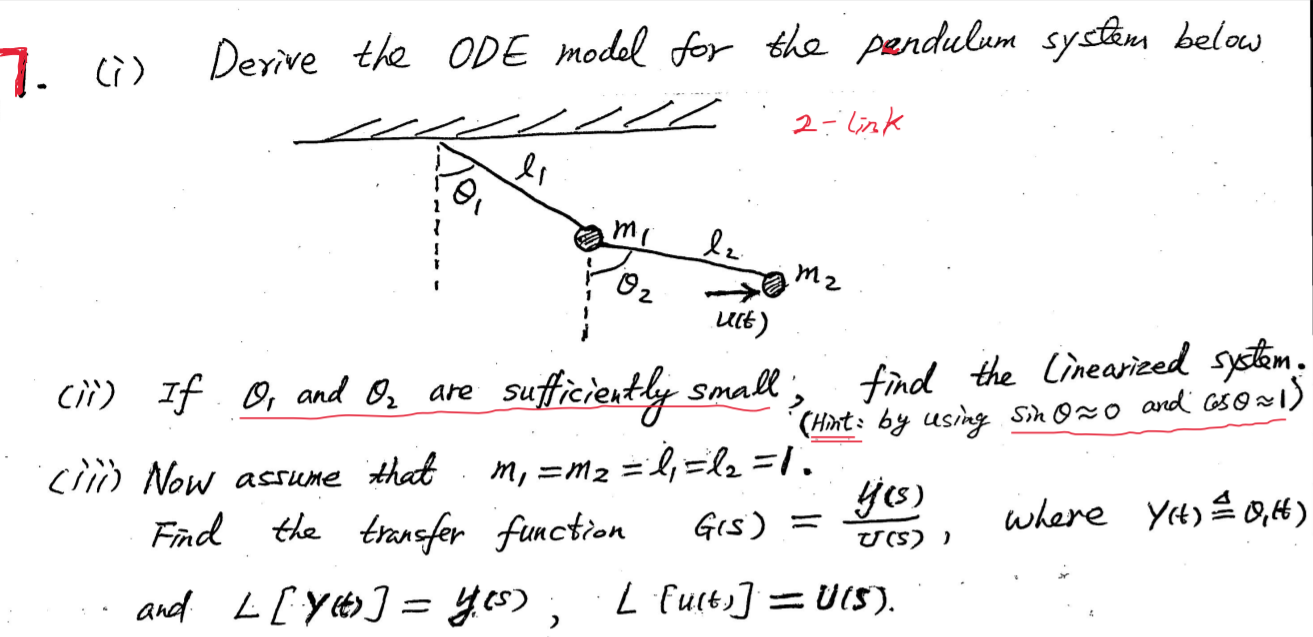 7. (i) Derive the ODE model for the pendulum system below
2-link
l₁
θ₁
m₁
l₂
m₂
θ₂
u(t)
(ii) If θ₁ and θ₂ are sufficiently small, find the linearized system.
(Hint: by using sin θ ≈ 0 and cos θ ≈ 1)
(iii) Now assume that m₁ = m₂ = l₁ = l₂ = 1.
Find the transfer function G(s) = y(s) / U(s), where Y(t) ≜ θ₁(t)
and L[Y(t)] = y(s), L[u(t)] = U(s).